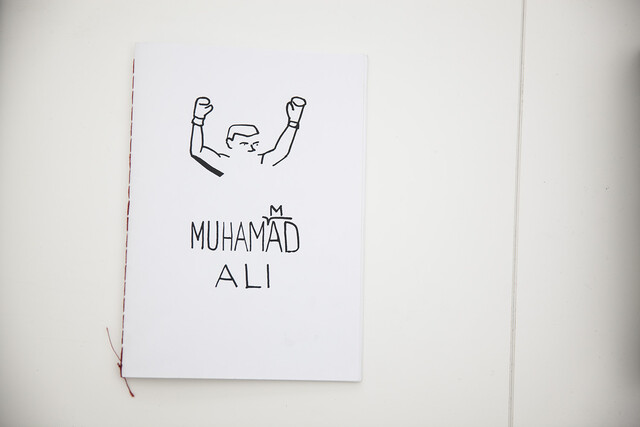 M
MUHAMAD
ALI